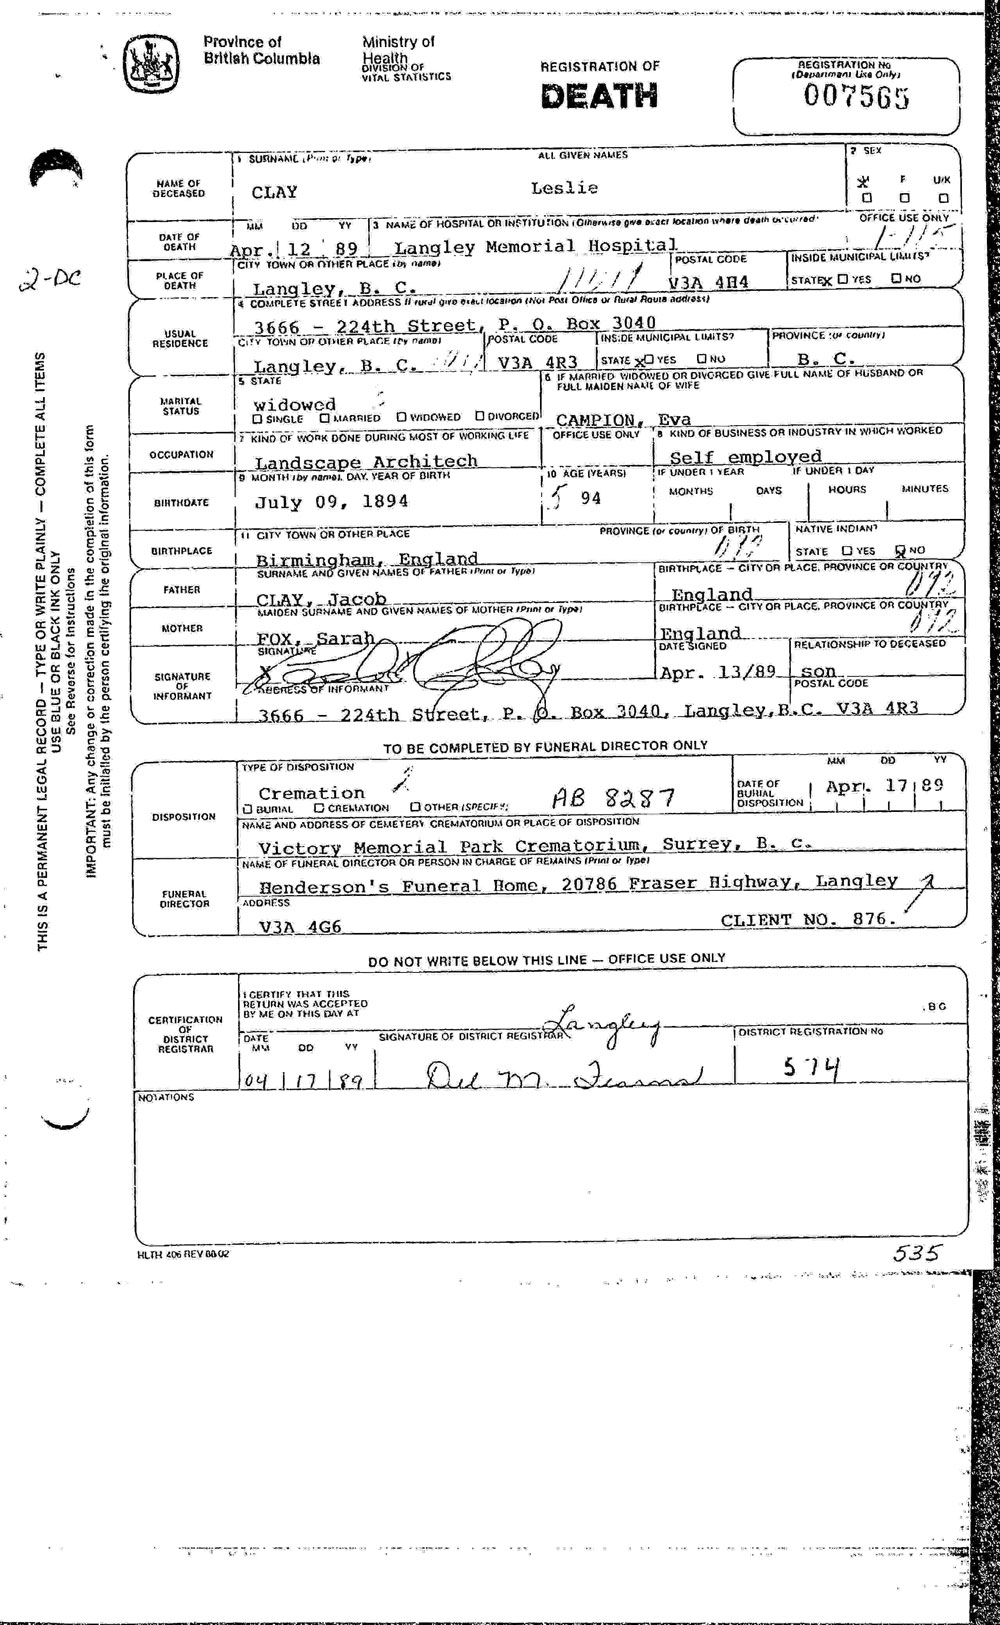 Province of
British Columbia
Ministry of
Health
DIVISION OF
VITAL STATISTICS
REGISTRATION OF
DEATH
REGISTRATION No
(Department Use Only)
007565
2-DC
THIS IS A PERMANENT LEGAL RECORD — TYPE OR WRITE PLAINLY — COMPLETE ALL ITEMS
USE BLUE OR BLACK INK ONLY
See Reverse for Instructions
IMPORTANT: Any change or correction made in the completion of this form
must be initialled by the person certifying the original information.
NAME OF
DECEASED
1 SURNAME (Print or Type) ALL GIVEN NAMES
CLAY Leslie
2 SEX
M F U/K
DATE OF
DEATH
MM DD YY
Apr. 12 89
3 NAME OF HOSPITAL OR INSTITUTION (Otherwise give exact location where death occurred)
Langley Memorial Hospital
OFFICE USE ONLY
PLACE OF
DEATH
CITY TOWN OR OTHER PLACE (by name)
Langley, B. C.
POSTAL CODE
V3A 4H4
INSIDE MUNICIPAL LIMITS?
STATE X YES NO
USUAL
RESIDENCE
4 COMPLETE STREET ADDRESS If rural give exact location (Not Post Office or Rural Route address)
3666 - 224th Street, P. O. Box 3040
CITY TOWN OR OTHER PLACE (by name)
Langley, B. C.
POSTAL CODE
V3A 4R3
INSIDE MUNICIPAL LIMITS?
STATE X YES NO
PROVINCE (or country)
B. C.
MARITAL
STATUS
5 STATE
widowed
SINGLE MARRIED WIDOWED DIVORCED
6 IF MARRIED WIDOWED OR DIVORCED GIVE FULL NAME OF HUSBAND OR
FULL MAIDEN NAME OF WIFE
CAMPION, Eva
OCCUPATION
7 KIND OF WORK DONE DURING MOST OF WORKING LIFE
Landscape Architech
OFFICE USE ONLY
8 KIND OF BUSINESS OR INDUSTRY IN WHICH WORKED
Self employed
BIRTHDATE
9 MONTH (by name). DAY, YEAR OF BIRTH
July 09, 1894
10 AGE (YEARS)
94
IF UNDER 1 YEAR
MONTHS DAYS
IF UNDER 1 DAY
HOURS MINUTES
BIRTHPLACE
11 CITY TOWN OR OTHER PLACE
Birmingham, England
PROVINCE (or country) OF BIRTH
NATIVE INDIAN?
STATE YES X NO
FATHER
SURNAME AND GIVEN NAMES OF FATHER (Print or Type)
CLAY, Jacob
BIRTHPLACE — CITY OR PLACE, PROVINCE OR COUNTRY
England
MOTHER
MAIDEN SURNAME AND GIVEN NAMES OF MOTHER (Print or Type)
FOX, Sarah
BIRTHPLACE — CITY OR PLACE, PROVINCE OR COUNTRY
England
SIGNATURE
OF
INFORMANT
SIGNATURE
X
DATE SIGNED
Apr. 13/89
RELATIONSHIP TO DECEASED
son
ADDRESS OF INFORMANT
POSTAL CODE
3666 - 224th Street, P. O. Box 3040, Langley,B.C. V3A 4R3
TO BE COMPLETED BY FUNERAL DIRECTOR ONLY
DISPOSITION
TYPE OF DISPOSITION
Cremation
BURIAL CREMATION OTHER (SPECIFY)
AB 8287
DATE OF
BURIAL
DISPOSITION
MM DD YY
Apr. 17 89
NAME AND ADDRESS OF CEMETERY CREMATORIUM OR PLACE OF DISPOSITION
Victory Memorial Park Crematorium, Surrey, B. C.
FUNERAL
DIRECTOR
NAME OF FUNERAL DIRECTOR OR PERSON IN CHARGE OF REMAINS (Print or Type)
Henderson's Funeral Home, 20786 Fraser Highway, Langley
ADDRESS
V3A 4G6
CLIENT NO. 876.
DO NOT WRITE BELOW THIS LINE — OFFICE USE ONLY
CERTIFICATION
OF
DISTRICT
REGISTRAR
I CERTIFY THAT THIS
RETURN WAS ACCEPTED
BY ME ON THIS DAY AT
Langley
, BC
DATE
MM DD YY
04 17 89
SIGNATURE OF DISTRICT REGISTRAR
DISTRICT REGISTRATION No
574
NOTATIONS
HLTH 406 REV 88 02
535